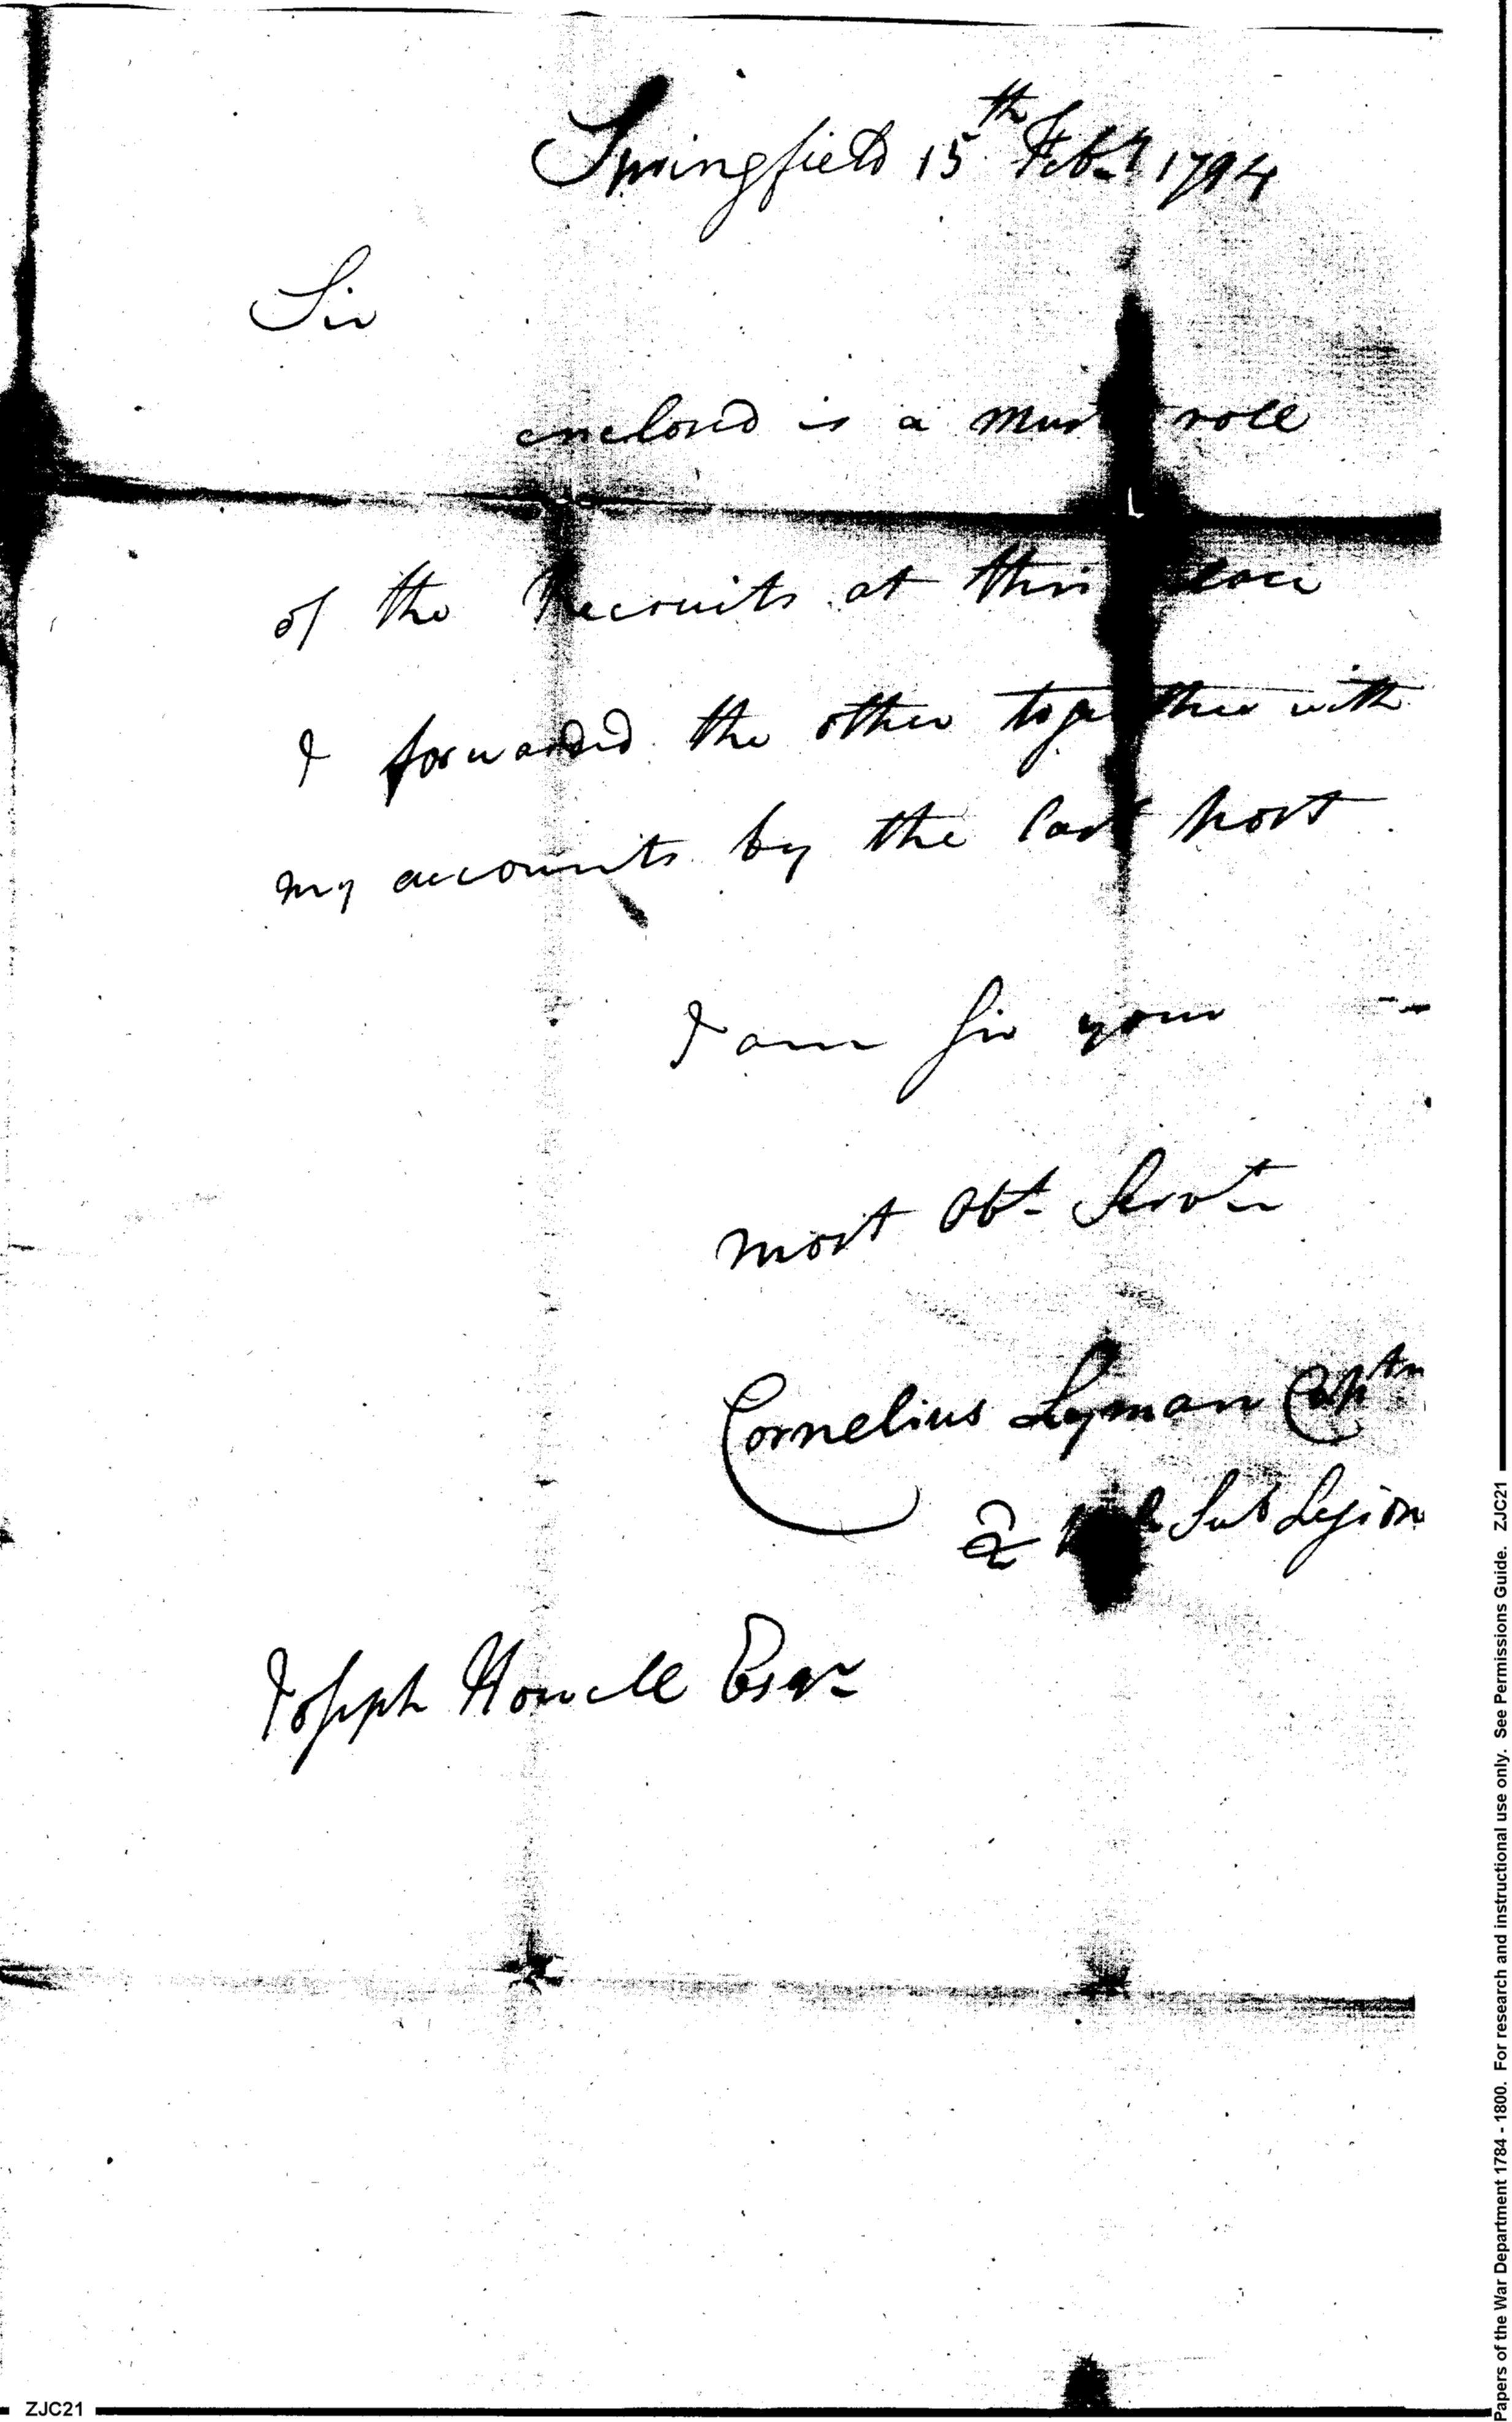 Springfield 15th Feby 1794
Sir
enclosed is a Must roll
of the Recruits at this place
I forwarded the other together with
my accounts by the last post
I am Sir your
most Obt Servt
Cornelius Lyman Captn
2 Sub Legion
Joseph Howell Esqr
ZJC21
Papers of the War Department 1784 - 1800. For research and instructional use only. See Permissions Guide. ZJC21